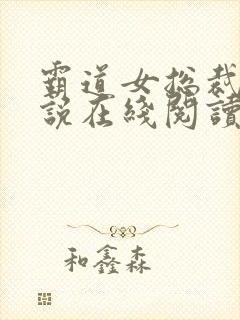 霸道女总裁
说在綫閱讀
和鑫森